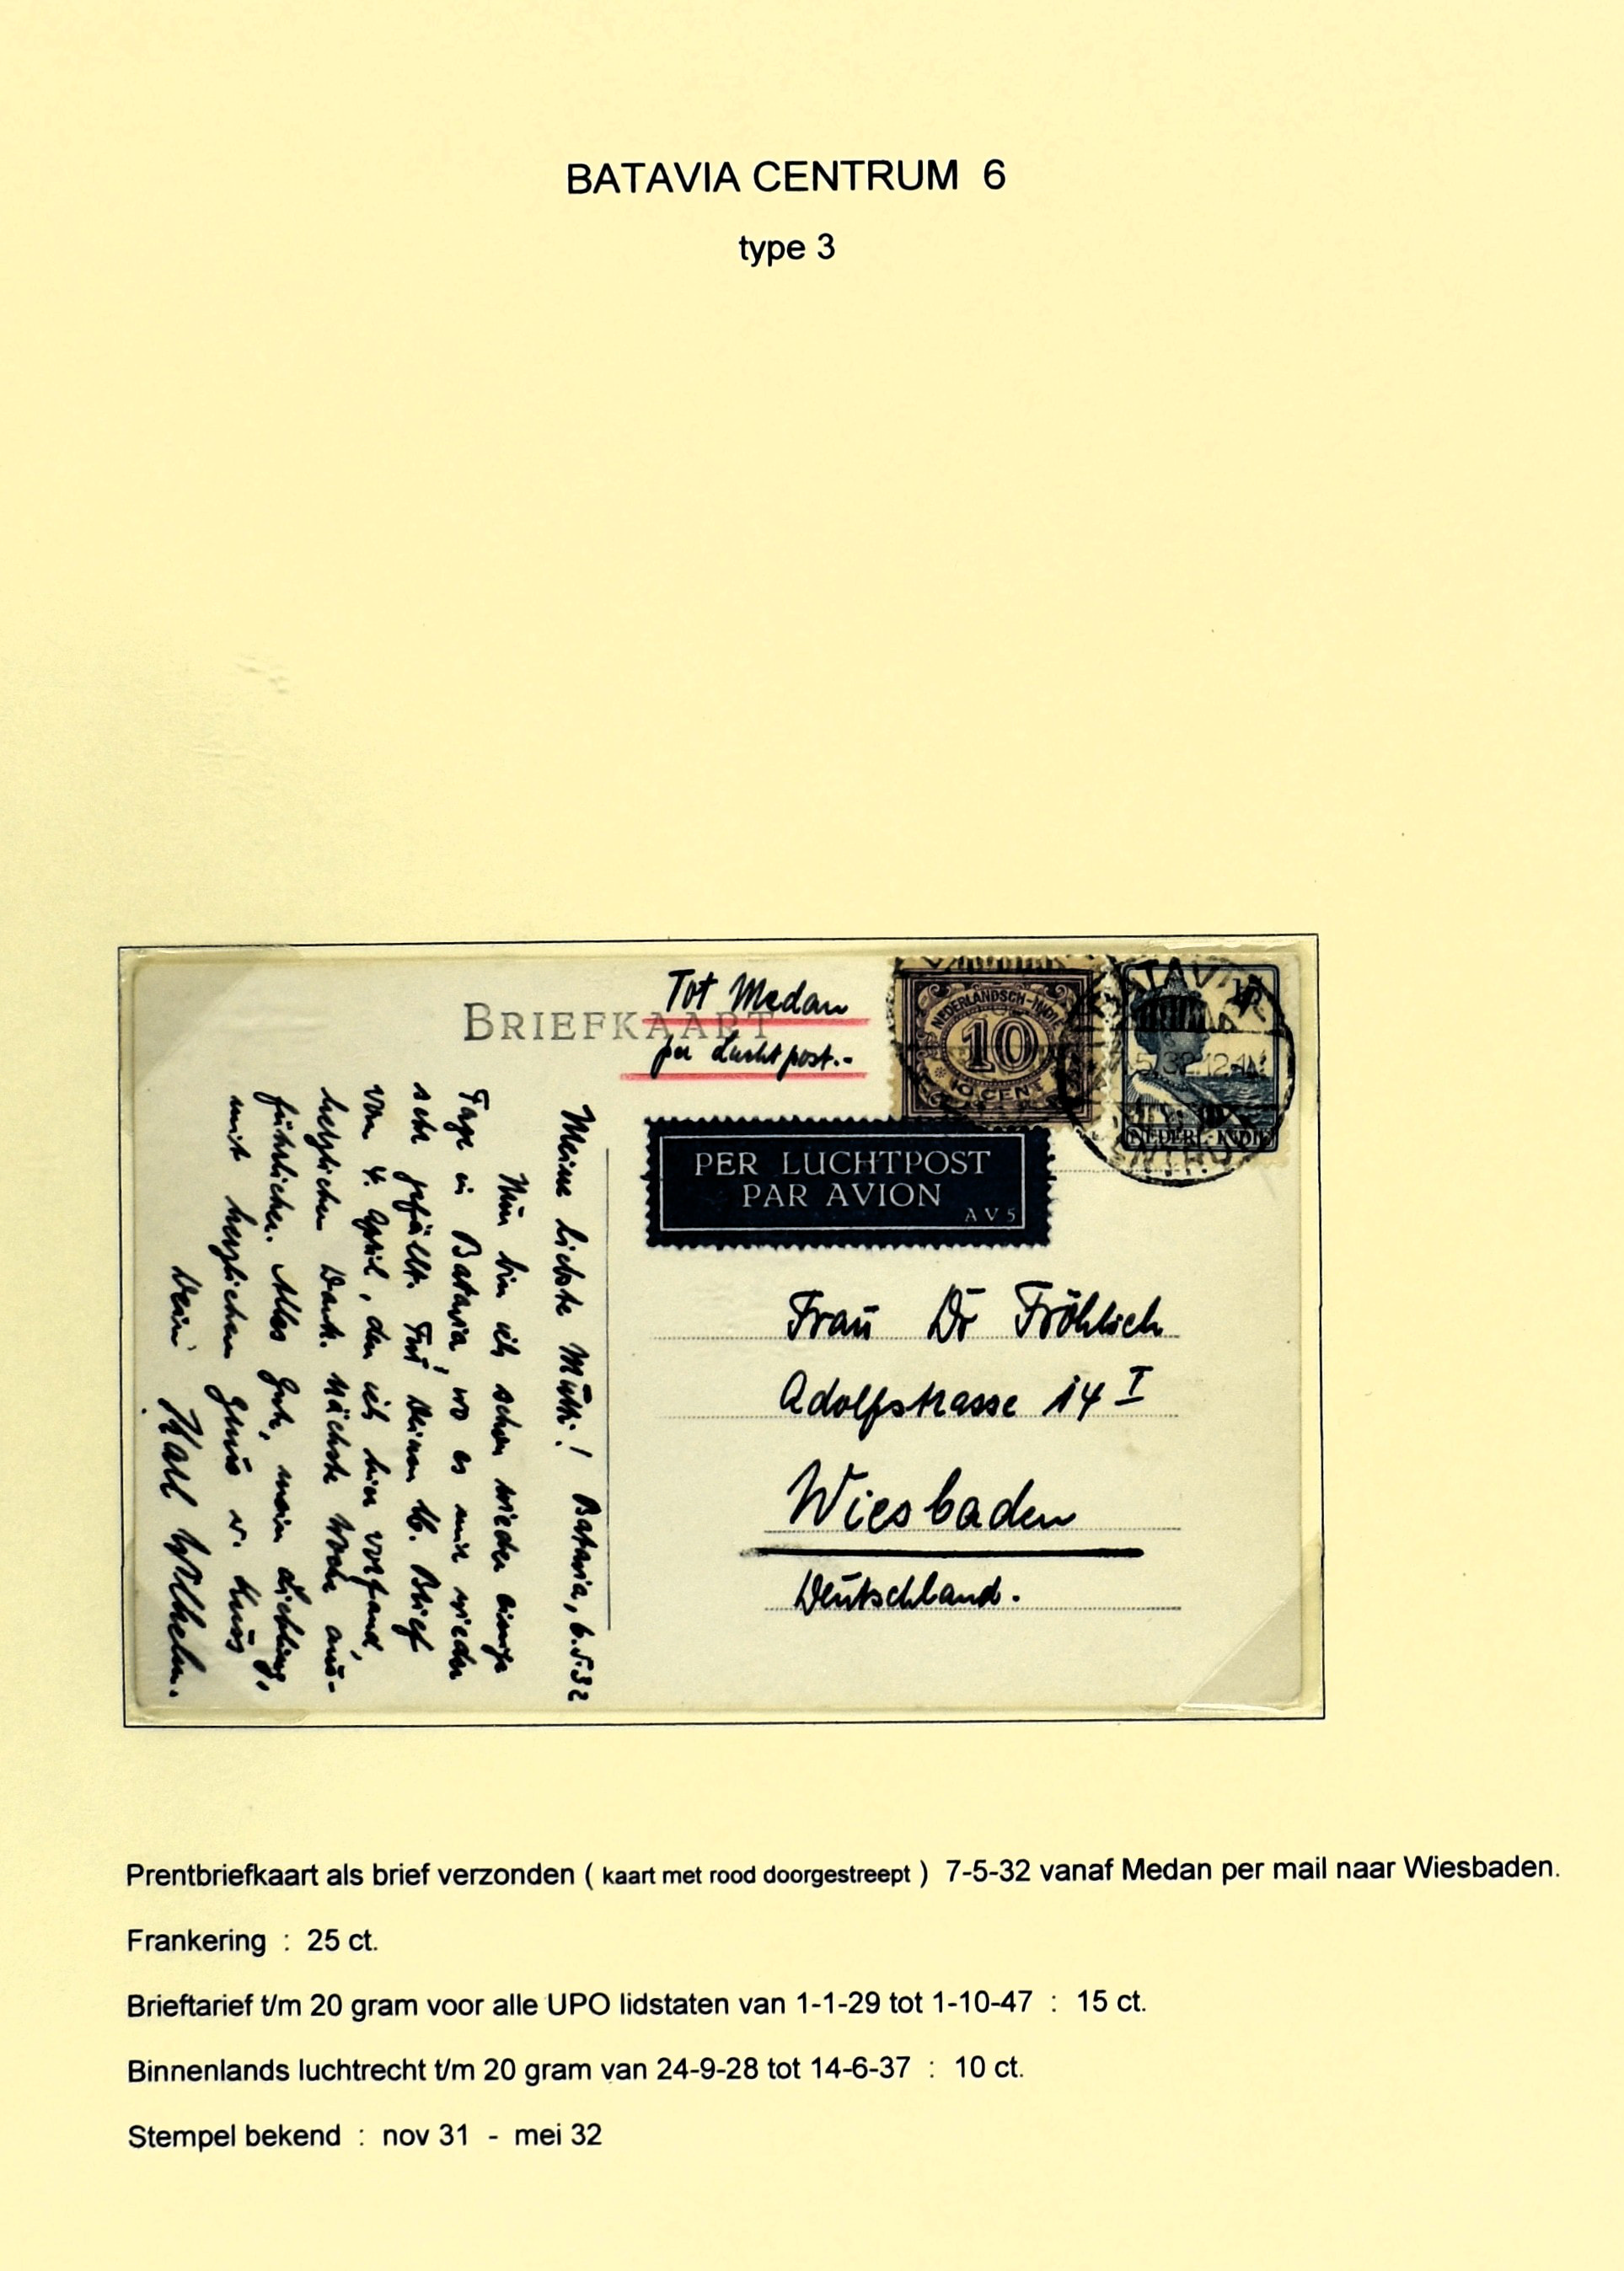 BATAVIA CENTRUM 6
type 3
BRIEFKAART
Tot Medan
per Luchtpost.-
NEDERLANDSCH-INDIË
10
10 CENT
5.32.12-1N
NEDERL-INDIË
PER LUCHTPOST
PAR AVION
AV5
Frau Dr Fröhlich
Adolfstrasse 14 I
Wiesbaden
Deutschland.
Batavia, 6.5.32
Meine liebste Mutti!
Nun bin ich schon wieder einige
Tage in Batavia, wo es mir wieder
sehr gefällt. Für Deinen 16. Brief
vom 4. April, den ich hier vorfand,
herzlichen Dank. Nächste Woche aus-
führlicher. Alles Gute, mein Liebling,
mit herzlichem Gruss u. Kuss
Dein Karl Wilhelm.
Prentbriefkaart als brief verzonden ( kaart met rood doorgestreept ) 7-5-32 vanaf Medan per mail naar Wiesbaden.
Frankering : 25 ct.
Brieftarief t/m 20 gram voor alle UPO lidstaten van 1-1-29 tot 1-10-47 : 15 ct.
Binnenlands luchtrecht t/m 20 gram van 24-9-28 tot 14-6-37 : 10 ct.
Stempel bekend : nov 31 - mei 32